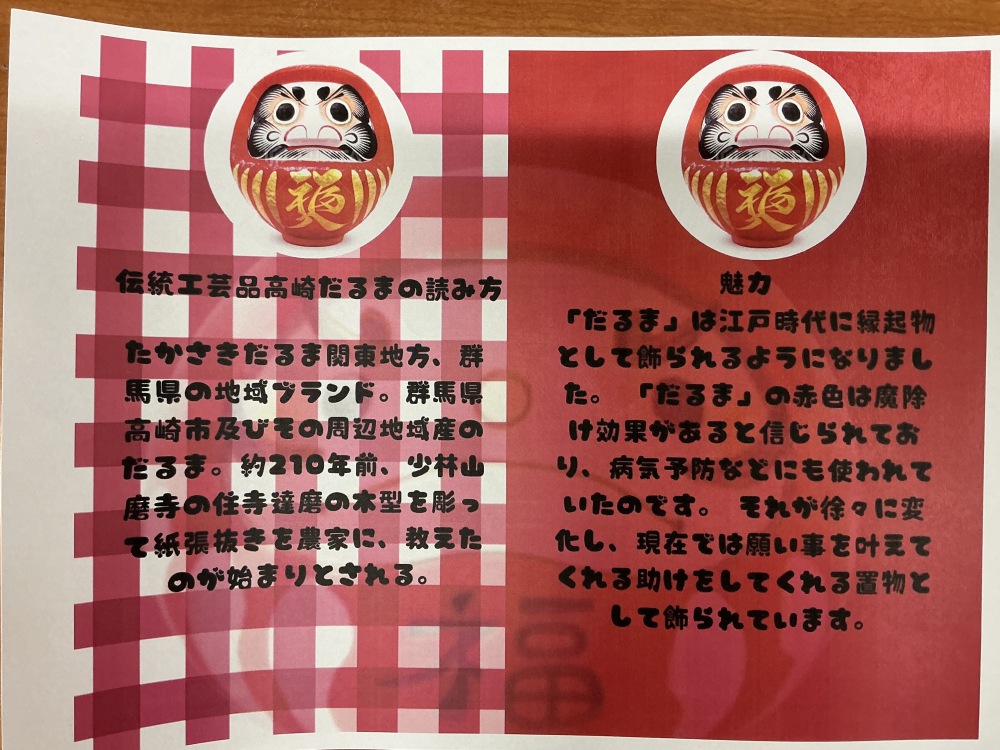 福
伝統工芸品高崎だるまの読み方
たかさきだるま関東地方、群
馬県の地域ブランド。群馬県
高崎市及びその周辺地域産の
だるま。約210年前、少林山
磨寺の住寺達磨の木型を彫っ
て紙張抜きを農家に、教えた
のが始まりとされる。
福
魅力
「だるま」は江戸時代に縁起物
として飾られるようになりまし
た。「だるま」の赤色は魔除
け効果があると信じられてお
り、病気予防などにも使われて
いたのです。 それが徐々に変
化し、現在では願い事を叶えて
くれる助けをしてくれる置物と
して飾られています。
福